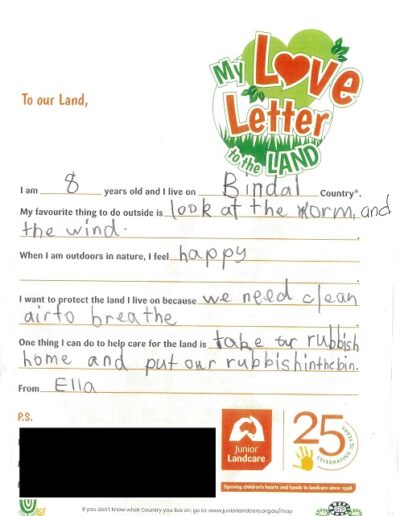 My Love
Letter
to the LAND
To our Land,
I am 8 years old and I live on Bindal Country*.
My favourite thing to do outside is look at the worm, and
the wind.
When I am outdoors in nature, I feel happy
I want to protect the land I live on because we need clean
airto breathe
One thing I can do to help care for the land is take our rubbish
home and put our rubbishinthebin.
From Ella
P.S.
Junior
Landcare
25 YEARS
CELEBRATING
Opening children's hearts and hands to landcare since 1998
If you don't know what Country you live on, go to: www.juniorlandcare.org.au/map